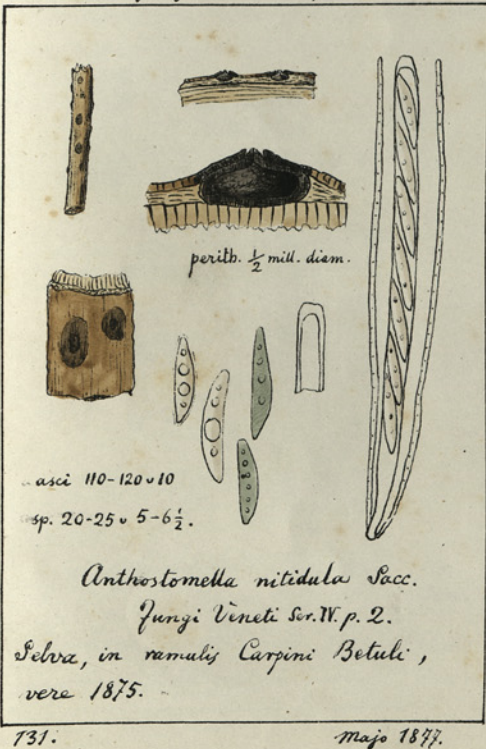 perith. ½ mill. diam.
asci 110-120 ᴗ 10
sp. 20-25 ᴗ 5-6½.
Anthostomella nitidula Sacc.
Fungi Veneti Ser. IV. p. 2.
Selva, in ramulis Carpini Betuli,
vere 1875.
131.
Majo 1877.